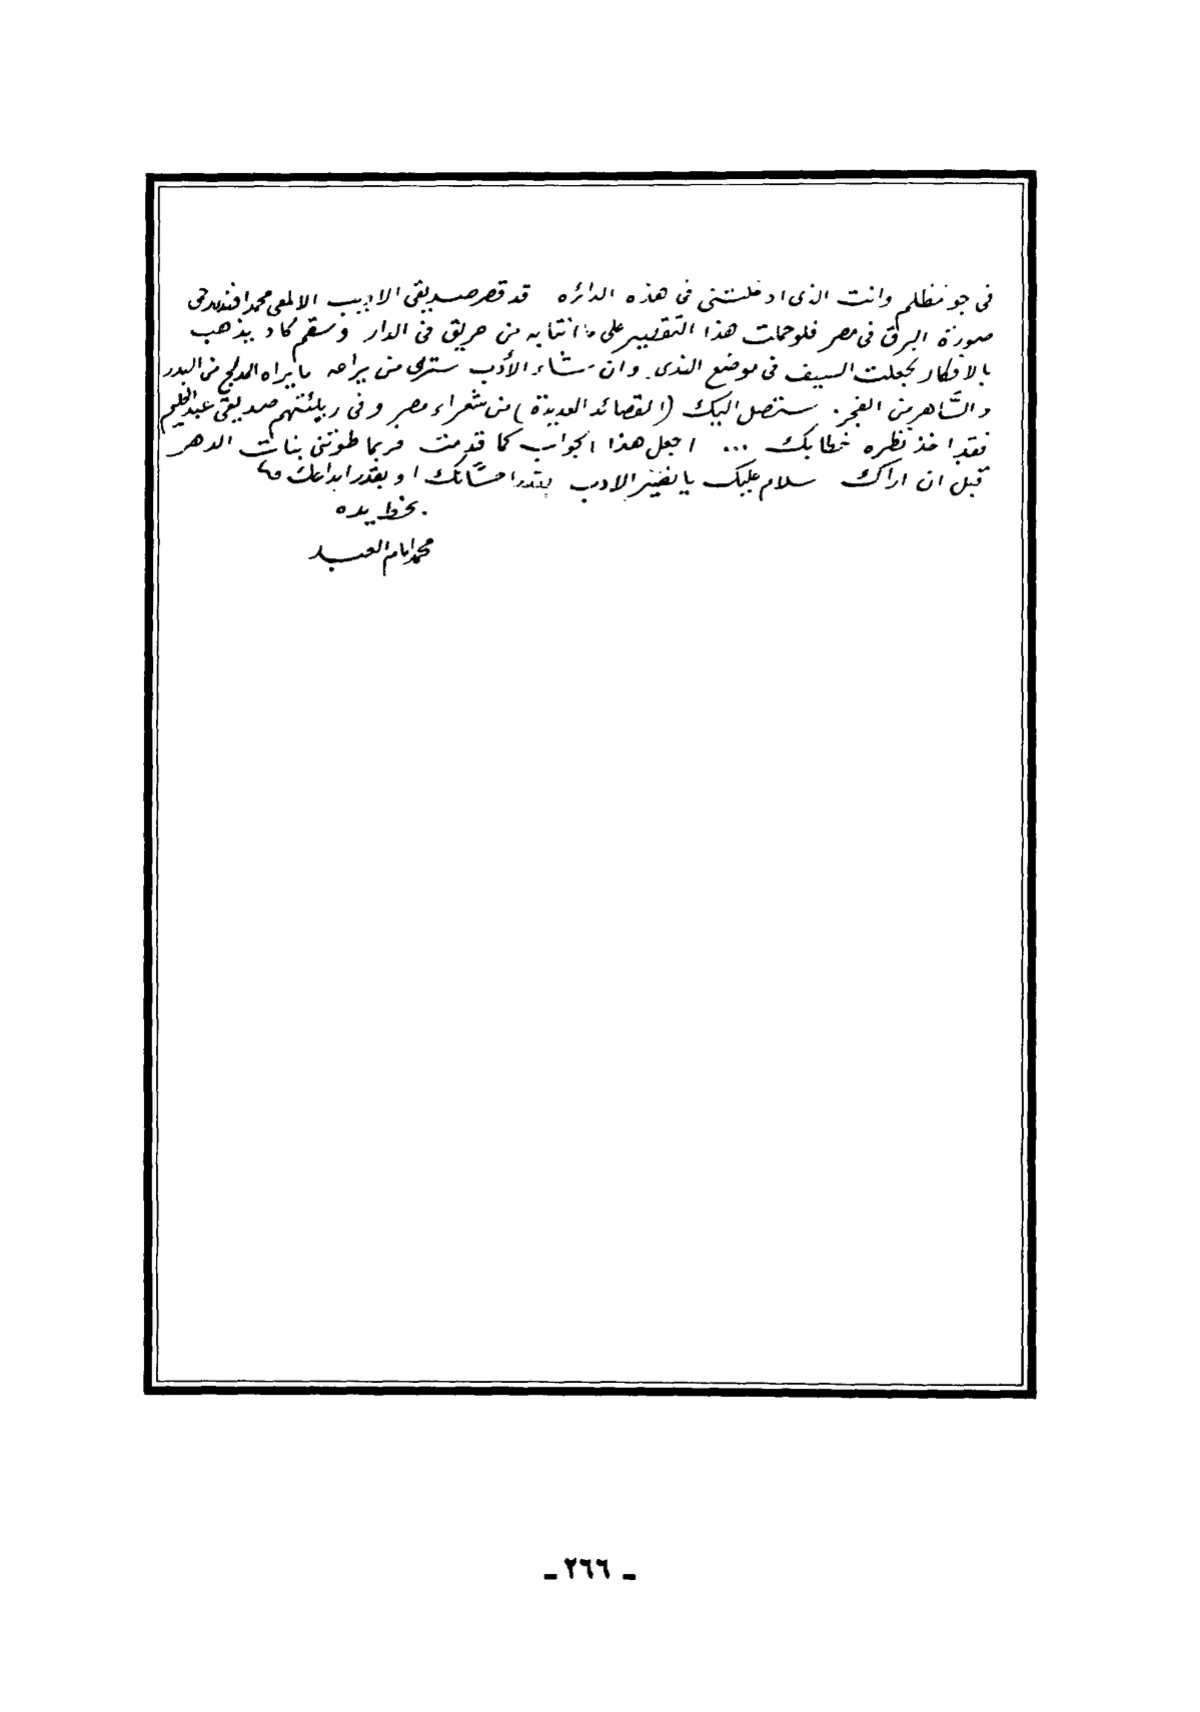 في جو مظلم وانت الذى ادخلتنى فى هذه الدائره قد قصر صديقى الاديب الالمعى محمد افندى
صورة البرق فى مصر فلو حملت هذا التقصير على ما انتابه من حريق فى الدار وسقم كاد يذهب
بالافكار لجعلت السيف فى موضع الندى. وان شاء الأدب سترى من يراعه ما يراه المدلج من البدر
والسَّاهر من الفجر. ستصل اليك (القصائد العديدة) من شعراء مصر وفى صديقى عبد الحليم
فقد اخذ نظره خطابك ... اجعل هذا الجواب كما قدمت فربما طوتنى بنات الدهر
قبل ان اراك سلام عليك يا نصير الادب بقدر احسانك او بقدر ابداعك
بخط يده
محمد امام العبد
ـ ٢٦٦ ـ